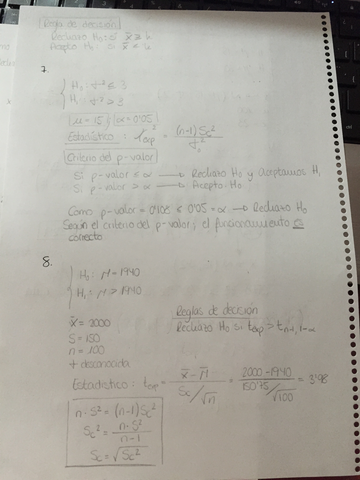 Regla de decisión
Rechazo H₀: si x̄ ≥ k
Acepto H₀: si x̄ < k
7.
H₀: σ² ≤ 3
H₁: σ² > 3
n = 15; α = 0'05
Estadístico: χ²exp = (n-1) Sc² / σ₀²
Criterio del p-valor
Si p-valor ≤ α → Rechazo H₀ y aceptamos H₁
Si p-valor > α → Acepto H₀
Como p-valor = < 0'05 = α → Rechazo H₀
Según el criterio del p-valor, el funcionamiento es
correcto
8.
H₀: μ = 1940
H₁: μ > 1940
Reglas de decisión
x̄ = 2000
Rechazo H₀ si texp > t n-1, 1-α
S = 150
n = 100
σ desconocida
Estadístico: texp = x̄ - μ / Sc/√n = 2000-1940 / 150'75/√100 = 3'98
n · S² = (n-1) Sc²
Sc² = n · S² / n-1
Sc = √Sc²